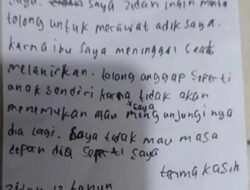 saya zidan ingin minta
tolong untuk merawat adik saya.
karna ibu saya meninggal saat
melahirkan. tolong anggap seperti
anak sendiri karna tidak akan
saya
menemukan atau mengunjungi nya
dia lagi. saya tidak mau masa
depan dia seperti saya
terima kasih
12 tahun